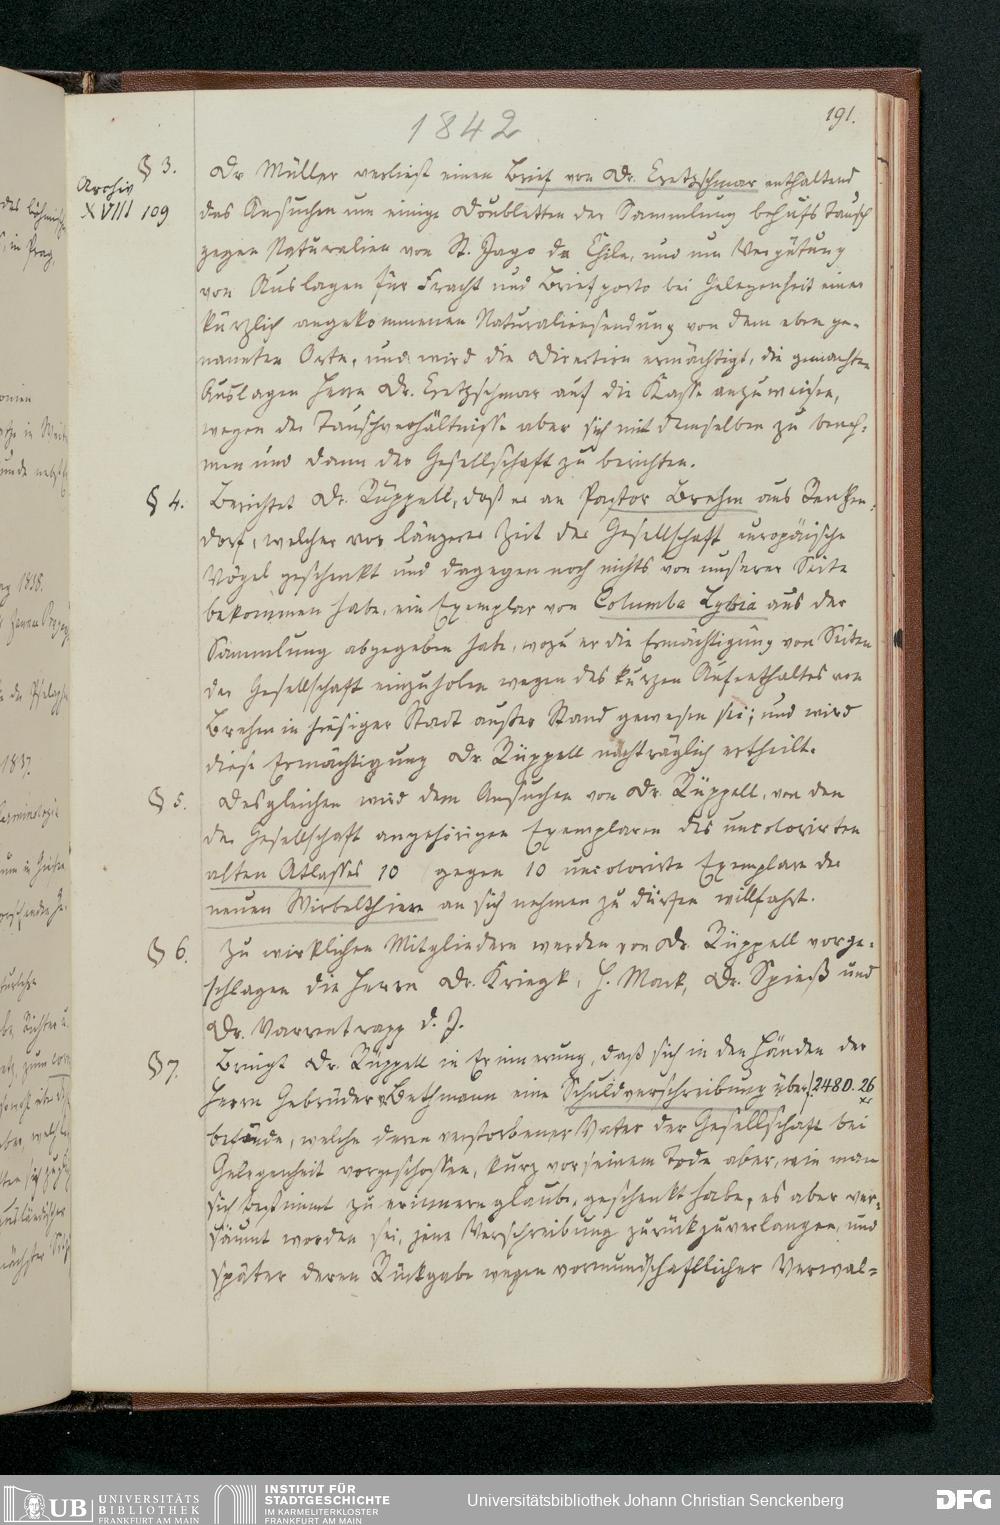 191.
1842
§ 3. Dr Müller verliest einen Brief von Dr. Cretzschmar enthaltend
Archiv
XVIII 109
das Ansuchen um einige Doubletten der Sammlung behufs Tausch
gegen Naturalien von St. Jago da Chile, und um Vergütung
von Auslagen für Fracht und Briefporto bei Gelegenheit einer
kürzlich angekommenen Naturaliensendung von dem eben ge-
nannten Orte, und wird die Direction ermächtigt, die gemachten
Auslagen Herrn Dr. Cretzschmar auf die Kasse anzuweisen,
wegen der Tauschverhältnisse aber sich mit demselben zu beneh-
men und dann der Gesellschaft zu berichten.
§ 4. Berichtet Dr. Rüppell, daß er an Pastor Brehm aus Renthen-
dorf, welcher vor längerer Zeit der Gesellschaft europäische
Vögel geschenkt und dagegen noch nichts von unserer Seite
bekommen habe, ein Exemplar von Columba Lybia aus der
Sammlung abgegeben habe, wozu er die Ermächtigung von Seiten
der Gesellschaft einzuholen wegen des kurzen Aufenthaltes von
Brehm in hiesiger Stadt außer Stand gewesen sei; und wird
diese Ermächtigung Dr Rüppell nachträglich ertheilt.
§ 5. Desgleichen wird dem Ansuchen von Dr. Rüppell, von den
der Gesellschaft angehörigen Exemplaren des uncolorirten
alten Atlasses 10 gegen 10 uncolorirte Exemplare der
neuen Wirbelthiere an sich nehmen zu dürfen willfahrt.
§ 6. Zu wirklichen Mitgliedern werden von Dr. Rüppell vorge-
schlagen die Herrn Dr. Kriegk, H. Mack, Dr. Spieß und
Dr. Varrentrapp d. J.
§ 7. Bringt Dr. Rüppell in Erinnerung, daß sich in den Händen der
Herrn Gebrüder v Bethmann eine Schuldverschreibung über f. 2480. 26 xr
befände, welche deren verstorbener Vater der Gesellschaft bei
Gelegenheit vorgeschossen, kurz vor seinem Tode aber, wie man
sich bestimmt zu erinnern glaube, geschenkt habe, es aber ver-
säumt worden sei, jene Verschreibung zurückzuverlangen, und
später deren Rückgabe wegen vormundschaftlicher Verwal-
UB UNIVERSITÄTS
BIBLIOTHEK
FRANKFURT AM MAIN
INSTITUT FÜR
STADTGESCHICHTE
IM KARMELITERKLOSTER
FRANKFURT AM MAIN
Universitätsbibliothek Johann Christian Senckenberg
DFG